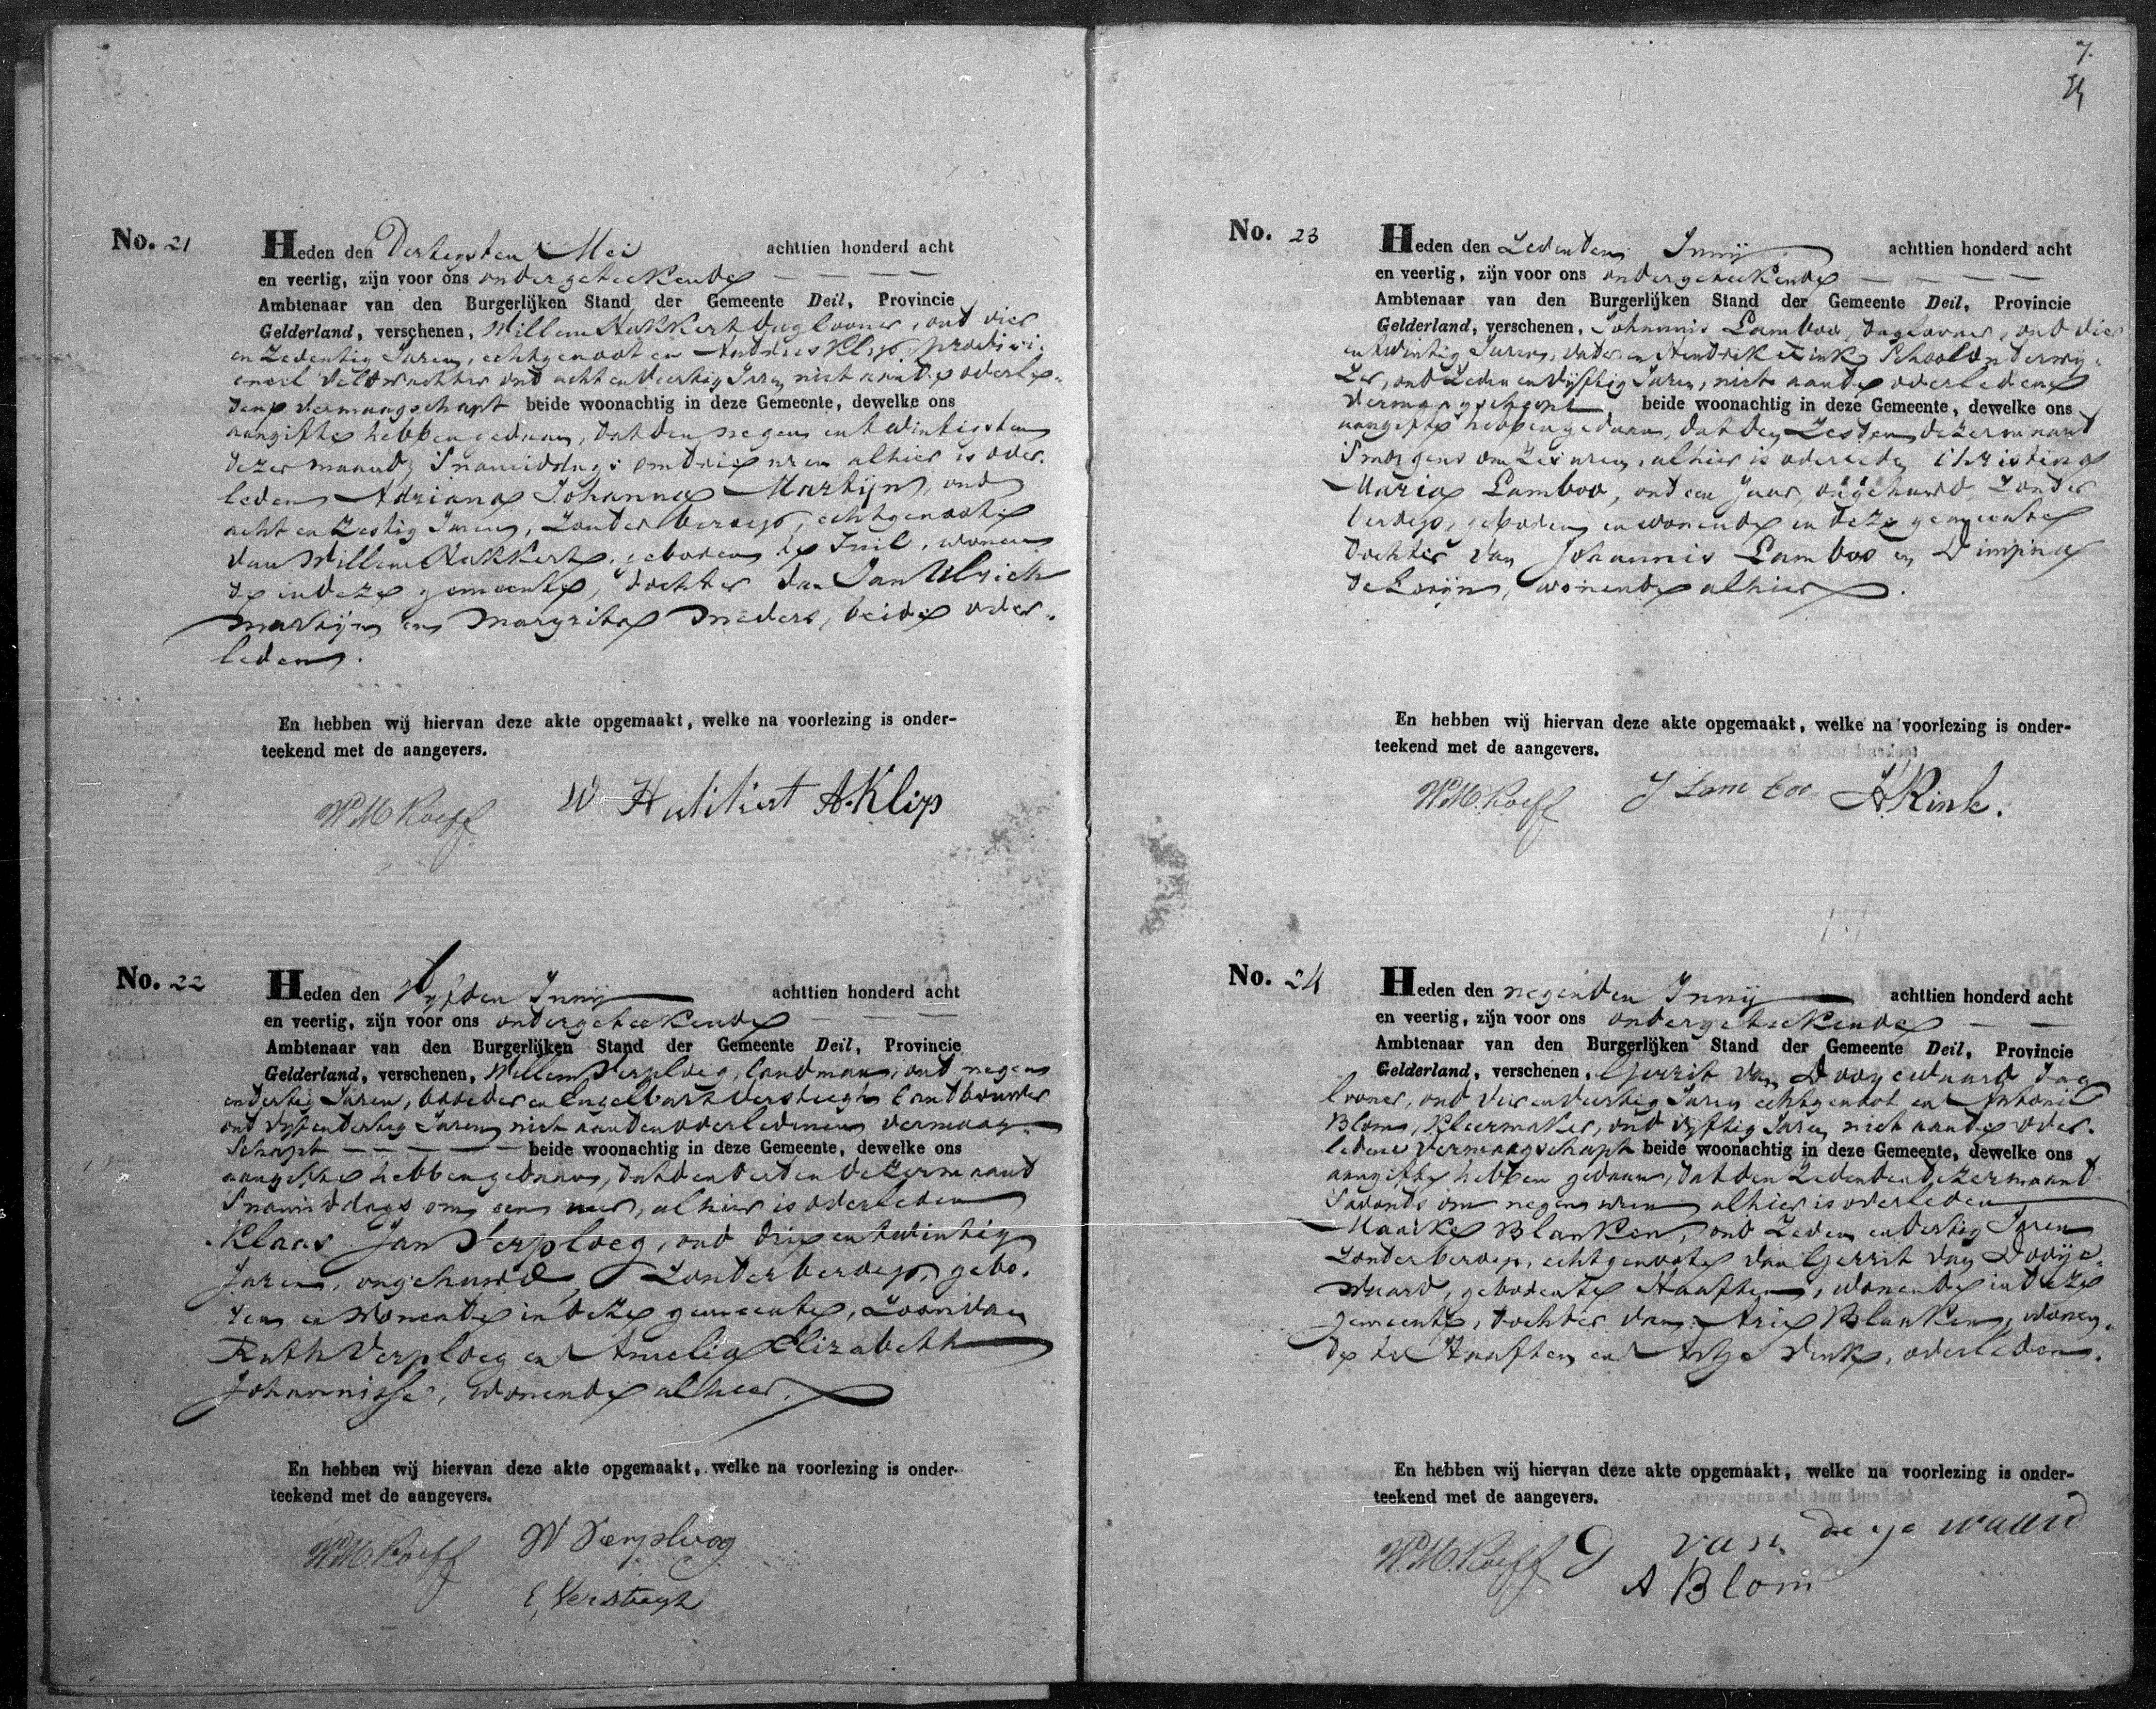 No. 21
Heden den Dertigsten Mei achttien honderd acht
en veertig, zijn voor ons ondergeteekende
Ambtenaar van den Burgerlijken Stand der Gemeente Deil, Provincie
Gelderland, verschenen, Willem Hakkert Daglooner, oud vier
en Zeventig Jaren, echtgenoot en Andries Klip, provinci,
eneel veldwachter oud acht en veertig Jaren niet aan de overle„
dene vermaagschapt beide woonachtig in deze Gemeente, dewelke ons
aangifte hebben gedaan, dat den negen en twintigsten
dezer maand, Snamiddags om drie uren alhier is over„
leden Adriana Johanna Martijn, oud
acht en Zestig Jaren, Zonder beroep, echtgenoote
van Willem Hakkert, geboren te Tuil, wonen
de in deze gemeente, dochter van Jan Ulrich
Martijn en Margrita Meders, beide over„
leden.
En hebben wij hiervan deze akte opgemaakt, welke na voorlezing is onder-
teekend met de aangevers.
WMKoeff W Hakkert A. Klip
No. 22
Heden den Vyfden Junij achttien honderd acht
en veertig, zijn voor ons ondergeteekende
Ambtenaar van den Burgerlijken Stand der Gemeente Deil, Provincie
Gelderland, verschenen, Willem Verploeg, landman, oud negen
en dertig Jaren, broeder en Engelbart Versteegh landbouwer
oud vyf en dertig Jaren niet aan den overledenen vermaag„
Schapt beide woonachtig in deze Gemeente, dewelke ons
aangifte hebben gedaan, dat den derden dezer maand
Snamiddags om een uur, alhier is overleden
Klaas Jan Verploeg, oud drie en twintig
Jaren, ongehuwd, Zonder beroep, gebo„
ren en wonende in deze gemeente, Zoon van
Ruth Verploeg en Amelia Elizabeth
Johannisse, wonende alhier.
En hebben wij hiervan deze akte opgemaakt, welke na voorlezing is onder-
teekend met de aangevers.
WMKoeff W Verploeg
E, Versteegh
7.
No. 23
Heden den Zevenden Junij achttien honderd acht
en veertig, zijn voor ons ondergeteekende
Ambtenaar van den Burgerlijken Stand der Gemeente Deil, Provincie
Gelderland, verschenen, Johannis Lamboo, Daglooner, oud vier
en twintig Jaren, vader en Hendrik Rink, Schoolonderwij„
Zer, oud Zeven en vyftig Jaren, niet aan de overledene
vermaagschapt beide woonachtig in deze Gemeente, dewelke ons
aangifte hebben gedaan, dat den Zesden dezer maand
Smorgens om Zes uren, alhier is overleden Christina
Maria Lamboo, oud een Jaar, ongehuwd, Zonder
beroep, geboren en wonende in deze gemeente
dochter van Johannis Lamboo en Dimpina
de Lorijn, wonende alhier.
En hebben wij hiervan deze akte opgemaakt, welke na voorlezing is onder-
teekend met de aangevers.
W.M.Koeff J Lamboo HRink.
No. 24
Heden den negenden Junij achttien honderd acht
en veertig, zijn voor ons ondergeteekende
Ambtenaar van den Burgerlijken Stand der Gemeente Deil, Provincie
Gelderland, verschenen, Gerrit van Dooyewaard dag
looner, oud vier en veertig Jaren echtgenoot en Antonie
Blom, Kleermaker, oud vyftig Jaren niet aan de over„
ledene vermaagschapt beide woonachtig in deze Gemeente, dewelke ons
aangifte hebben gedaan, dat den Zevenden dezer maand
Savonds om negen uren alhier is overleden
Maaike Blanken, oud Zeven en dertig Jaren
Zonder beroep, echtgenoote van Gerrit van Dooije„
waard, geboren te Haaften, wonende in deze
gemeente, dochter van Arie Blanken, wonen„
de te Haaften en overleden.
En hebben wij hiervan deze akte opgemaakt, welke na voorlezing is onder-
teekend met de aangevers.
W.M.Koeff G van doye waard
A Blom